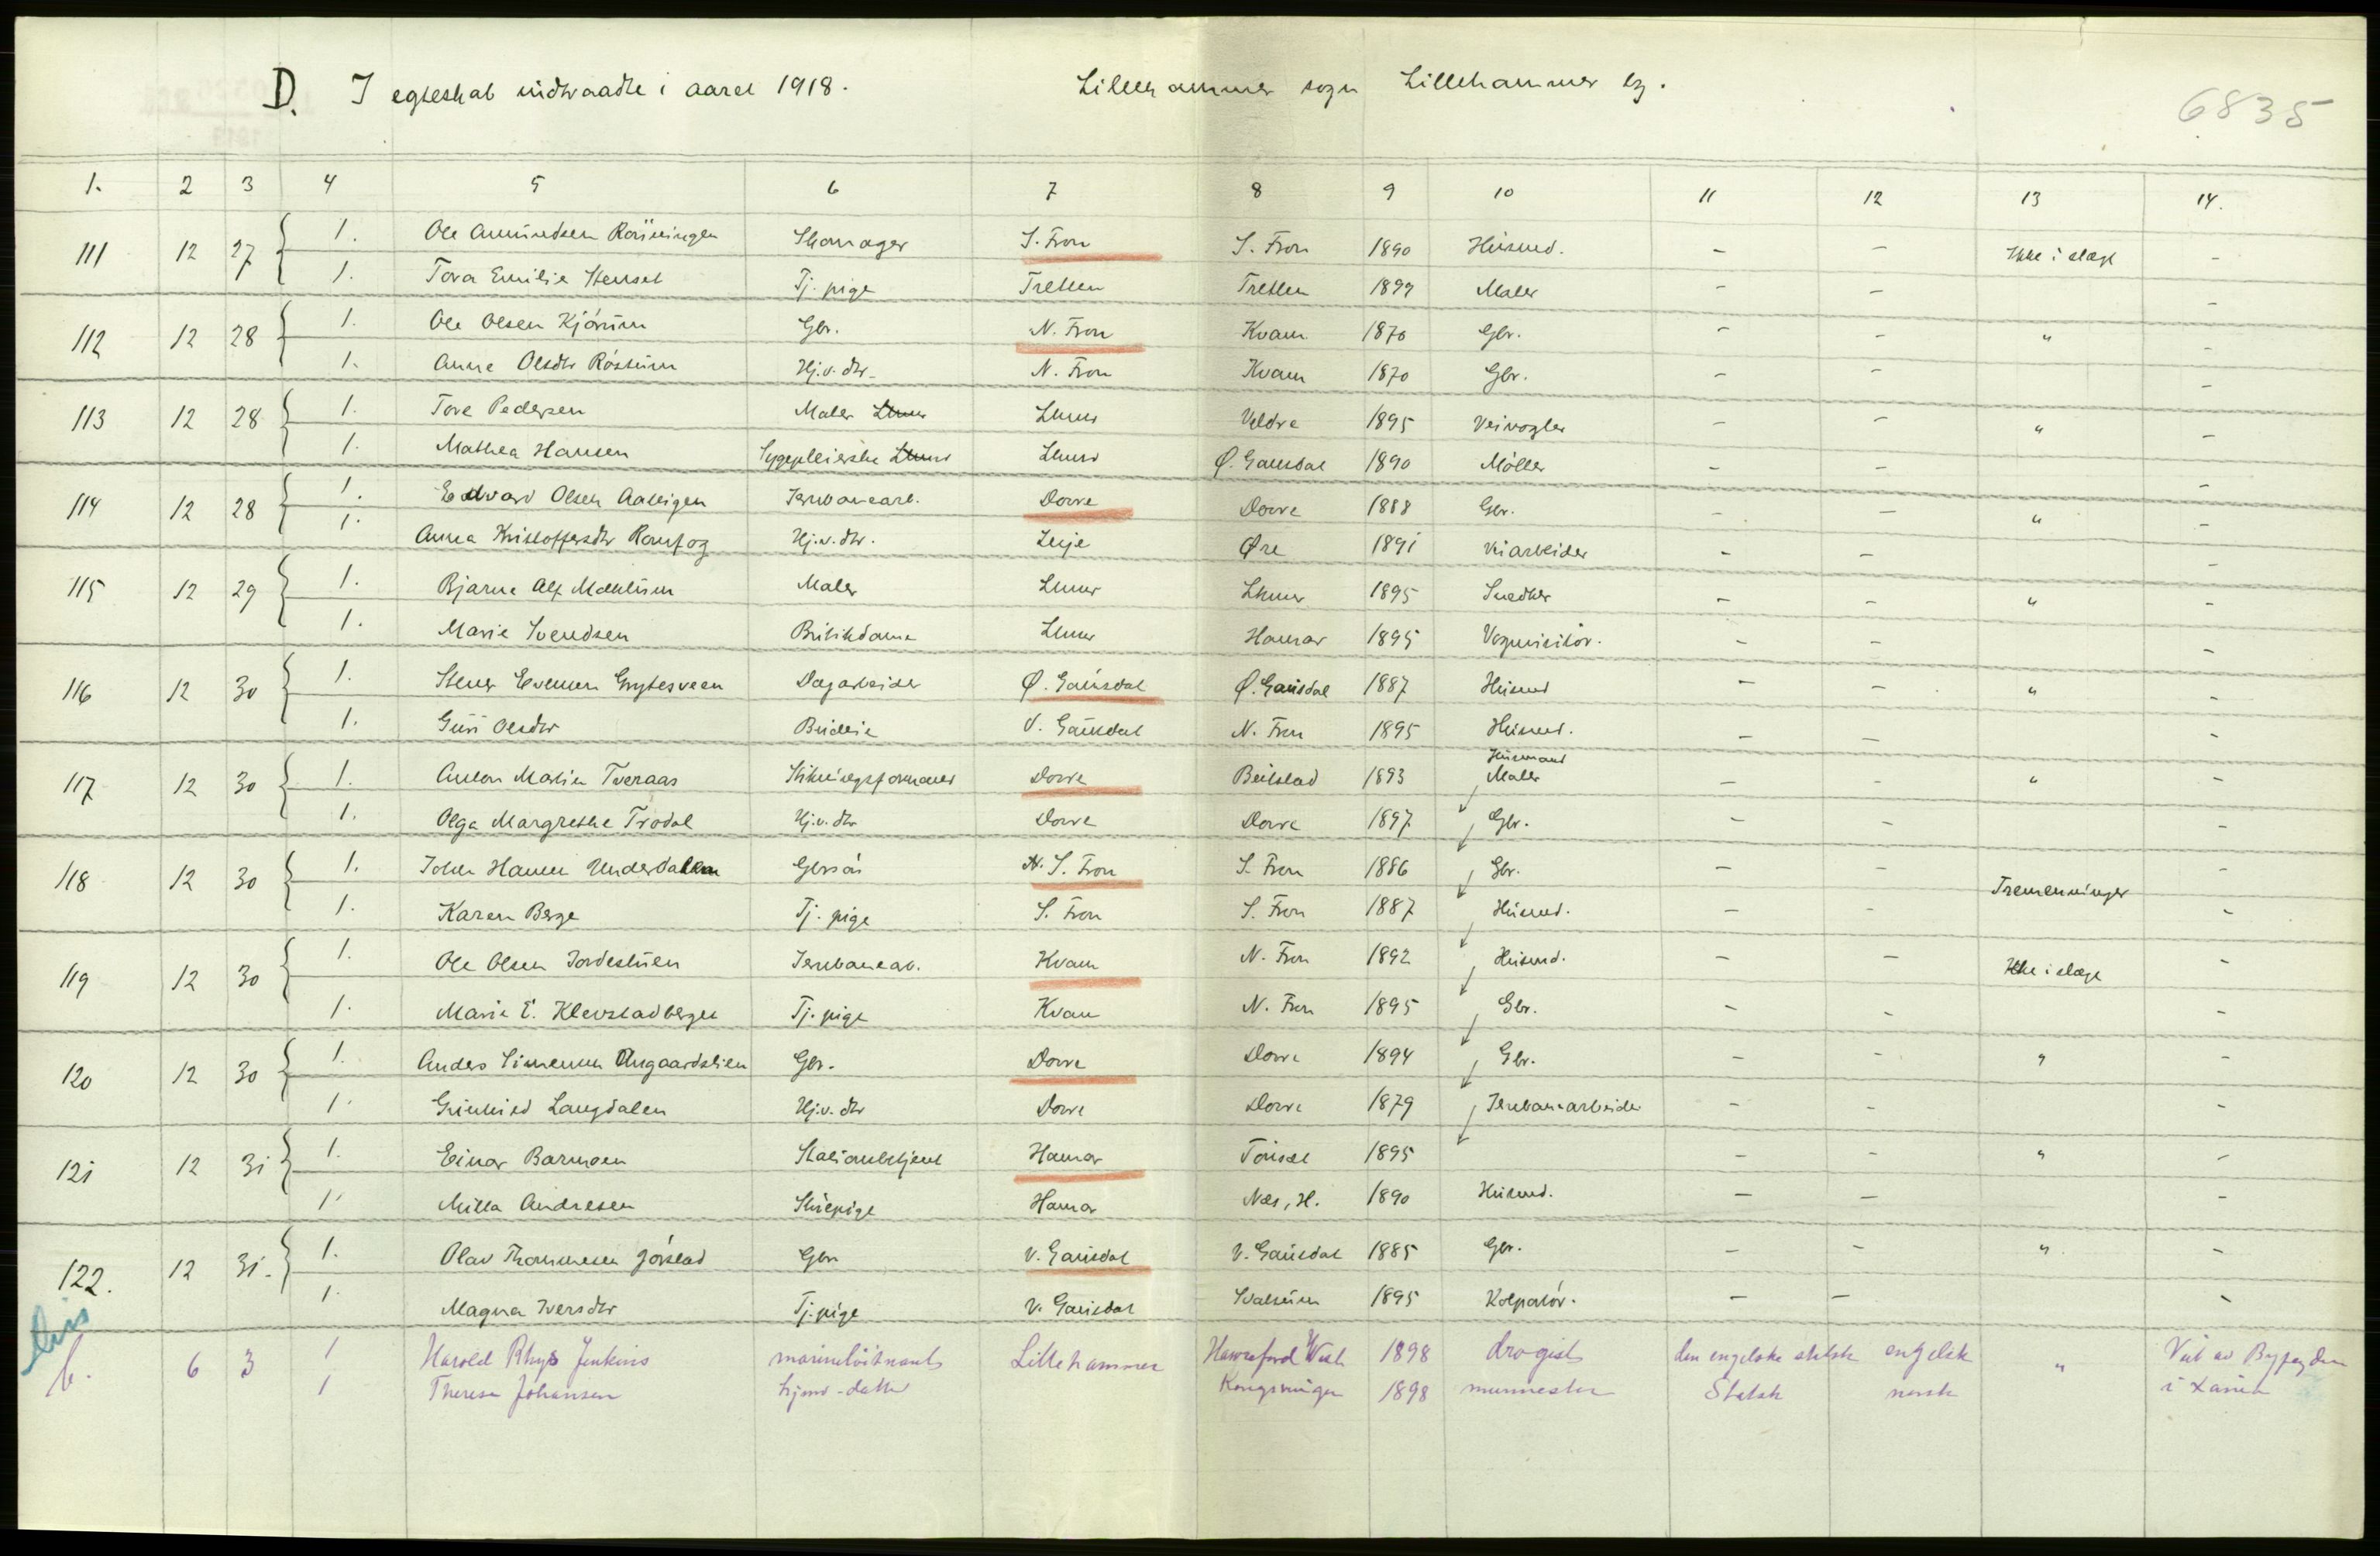 D. I egteskab indtraadte i aaret 1918. Lillehammer sogn Lillehammer by.
6835
1. 2 3 4 5 6 7 8 9 10 11 12 13 14.
111 12 27 1. Ole Amundsen Rønningen Skomager S. Fron S. Fron 1890 Husmd. - - Ikke i slægt -
1. Tora Emilie Stenset Tj. pige Tretten Tretten 1899 Maler - - -
112 12 28 1. Ole Olsen Kjørum Gbr. N. Fron Kvam 1870 Gbr. - - " -
1. Anne Olsdtr Røssum Hj.v. dtr. N. Fron Kvam 1870 Gbr. - - -
113 12 28 1. Tore Pedersen Maler Lhmr Lhmr Veldre 1895 Veivogter - - " -
1. Mathea Hansen Sygepleierske Lhmr Lhmr Ø. Gausdal 1890 Møller - - -
114 12 28 1. Edvard Olsen Dovre Dovre 1888 Gbr. - - " -
1. Anna Kristoffersdtr Hj.v. dtr. Lesje Øre 1891 Veiarbeider - - -
115 12 29 1. Bjarne Alf Mæhlum Maler Lhmr Lhmr 1895 Snedker - - " -
1. Marie Svendsen Butikdame Lhmr Hamar 1895 Vognvisitør. - - -
116 12 30 1. Stener Evensen Grytesveen Dagarbeider Ø. Gausdal Ø. Gausdal 1887 Husmd - - " -
1. Guri Olsdtr Budeie V. Gausdal N. Fron 1895 Husmd. - - -
Husmand
117 12 30 1. Anton Martin Tveraas Stikningsformand Dovre Beitstad 1893 Maler - - " -
1. Olga Margrethe Trodal Hj.v. dtr Dovre Dovre 1897 Gbr. - - -
118 12 30 1. Johan Hansen Underdalen Gbrsøn N. S. Fron S. Fron 1886 Gbr. - - Tremenninger -
1. Karen Berge Tj. pige S. Fron S. Fron 1887 Husmd. - - -
119 12 30 1. Ole Olsen Jordestuen Jernbanearb. Kvam N. Fron 1892 Husmd. - - Ikke i slægt -
1. Marie E. Klevstadberget Tj. pige Kvam N. Fron 1895 Gbr. - - -
120 12 30 1. Anders Simensen Angaardslien Gbr. Dovre Dovre 1894 Gbr. - - " -
1. Gunhild Langdalen Hj.v. dtr Dovre Dovre 1879 Jernbanearbeider - - -
121 12 31 1. Einar Barmoen Stationsbetjent Hamar Tønset 1895 - - " -
1. Milla Andresen Stuepige Hamar Næs, H. 1890 Husmd. - - -
122. 12 31. 1. Olav Thommesen Jørstad Gbr V. Gausdal V. Gausdal 1885 Gbr. - - " -
1. Magna Iversdtr Tj. pige V. Gausdal 1895 Kolportør. - - -
b. 6 3 1 Harold Rhys Jenkins marineløitnant Lillehammer Haverford West 1898 drogist den engelske statsk engelsk " Viet av Byfogden
1 Therese Johansen hjmv-datter Kongsvinger 1898 murmester Statsk norsk